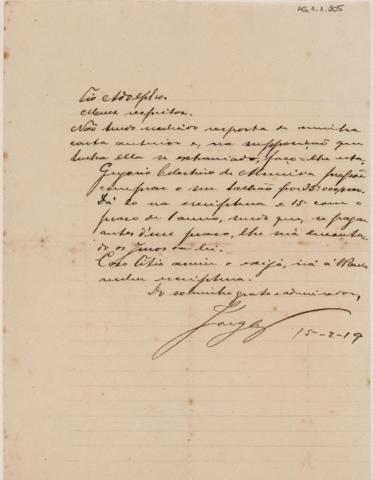 AG.1.1.305
Tio Adolpho.
Meus respeitos.
Não tendo recebido resposta da minha
carta anterior e, na supposição que
tenha ella se extraviado, faço-lhe esta.
Gregorio Celestino de Almeida propõe
comprar o seu talhão por 35:000$000.
Dá 20 na escriptura e 15 com o
praso de 1 anno, sendo que, se pagar
antes d'esse praso, lhe será descontado
os juros da lei.
Caso Titio annuir o exijá, irá á
escriptura.
Do sobrinho grato e admirador,
Jorge
15-2-19